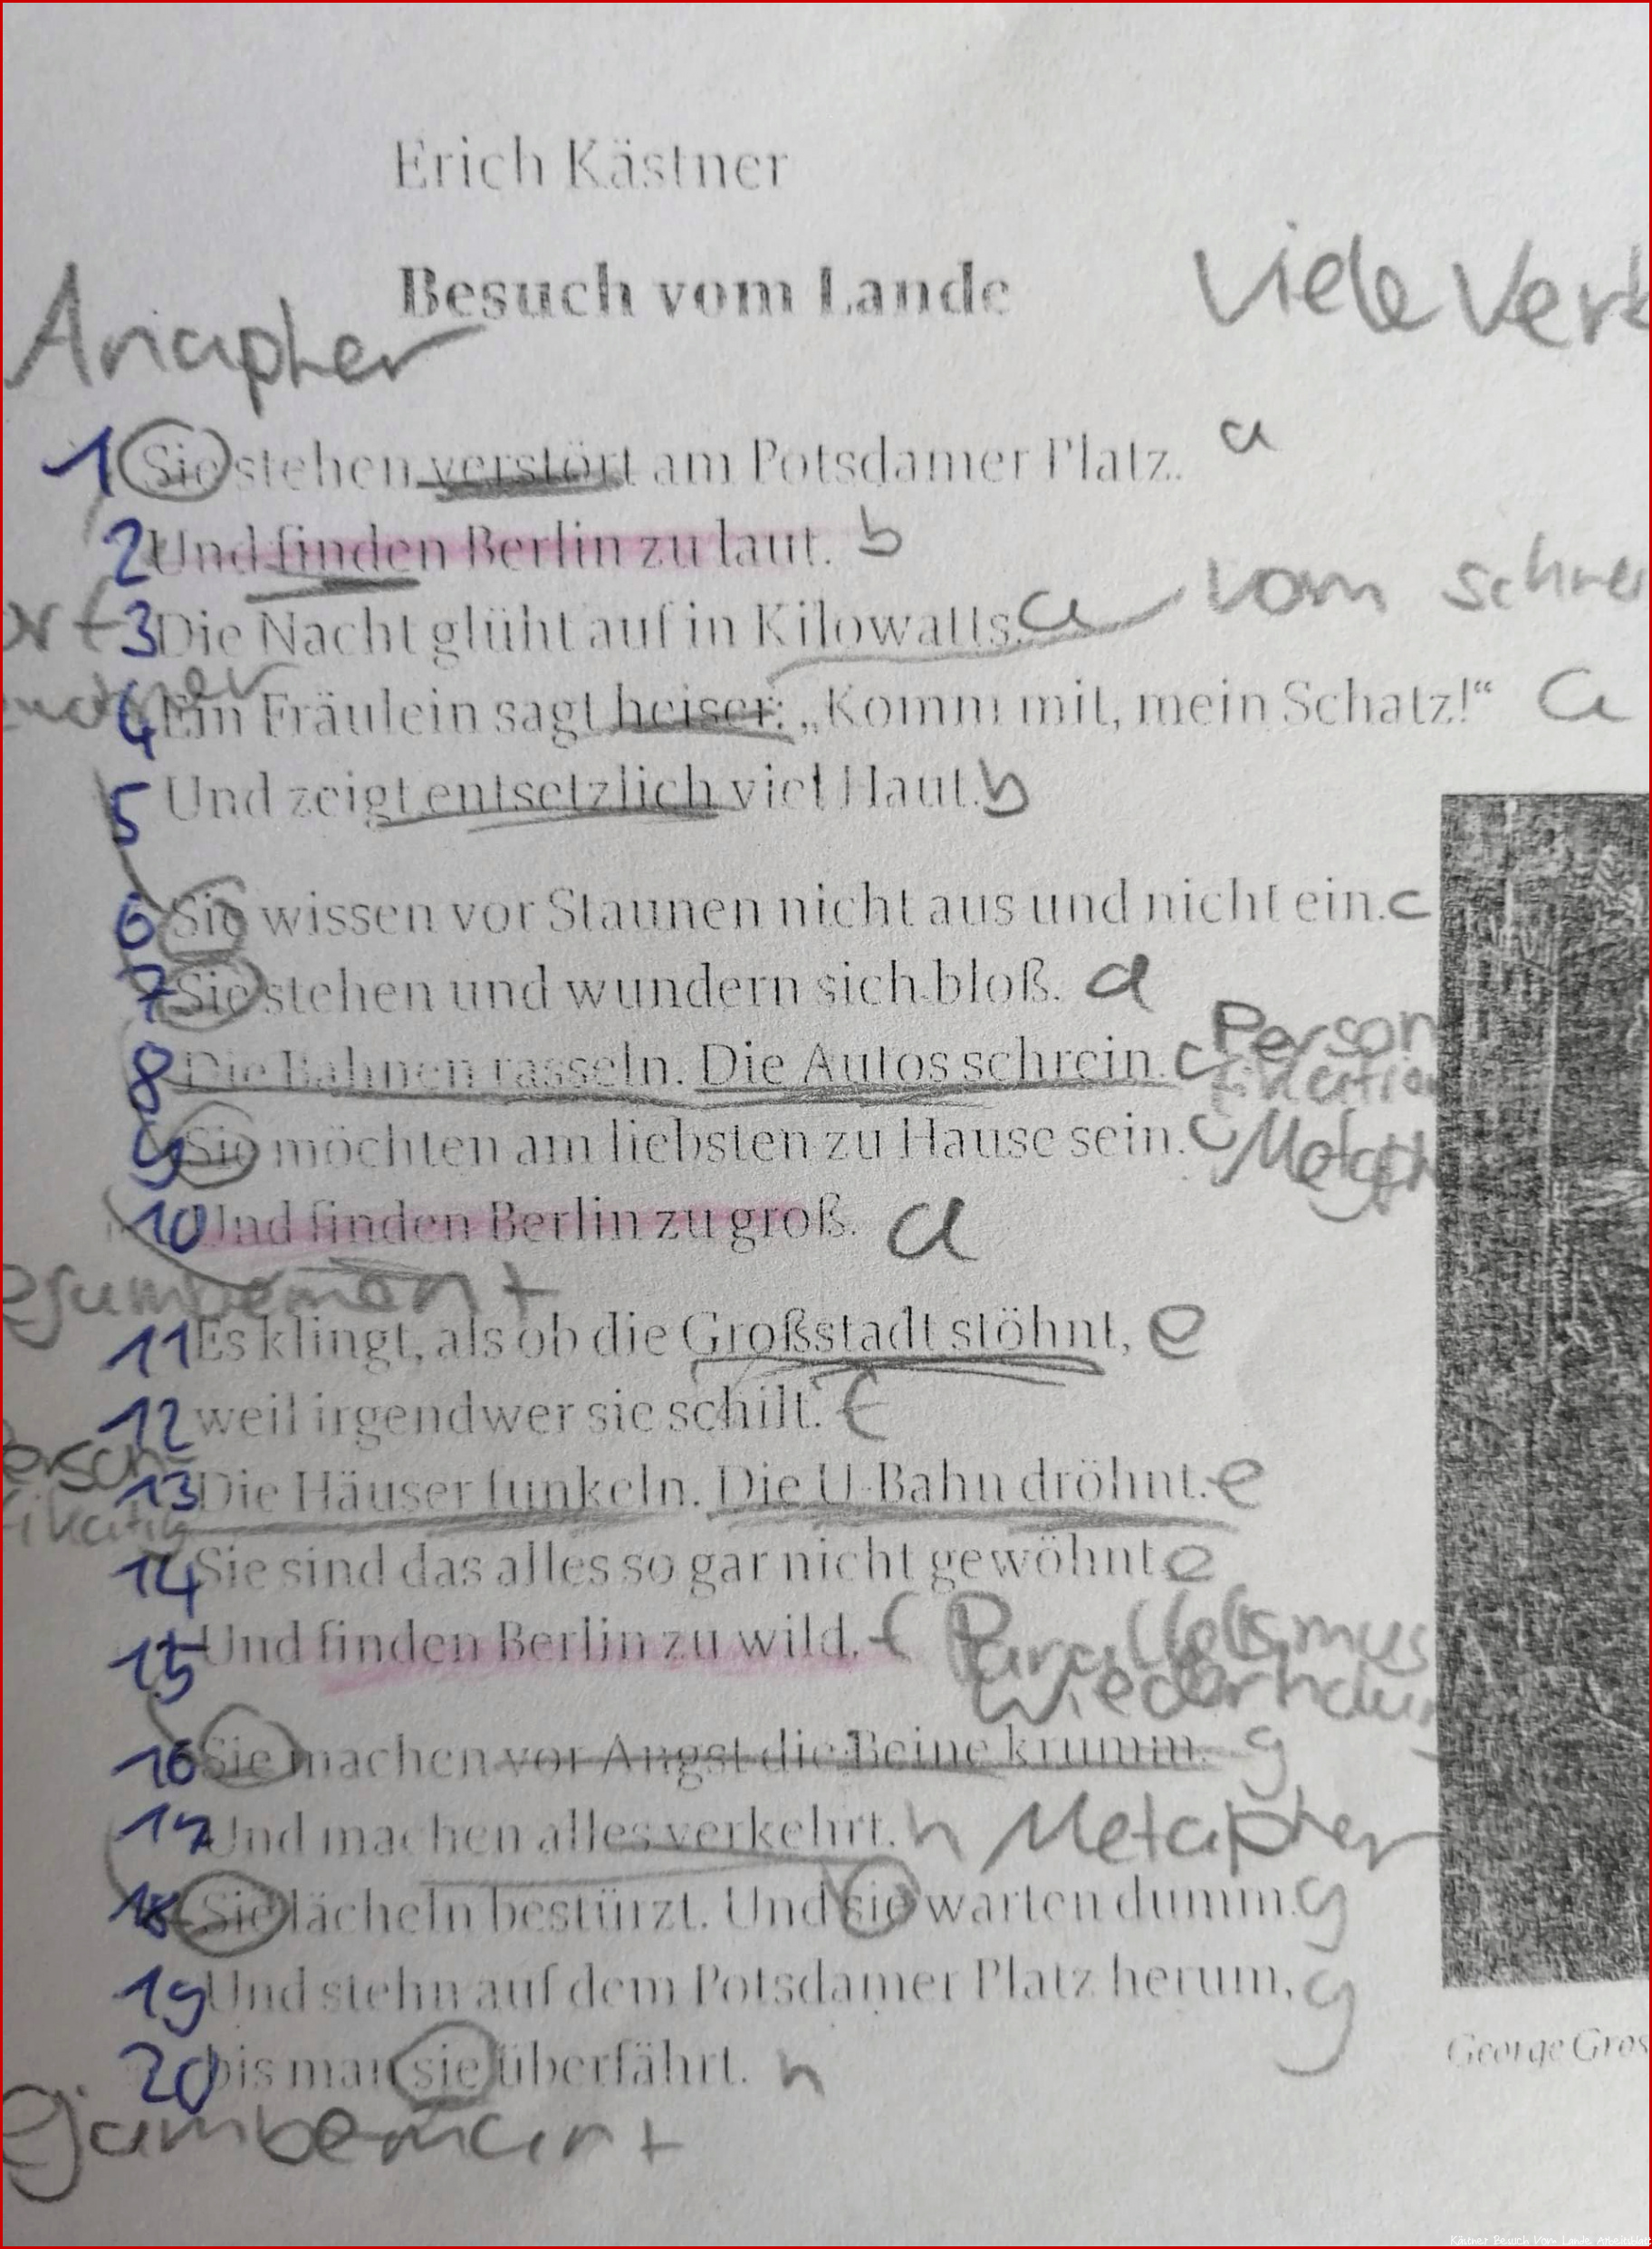 Erich Kästner
Besuch vom Lande
Viele Verb
Anapher
1 Sie stehen verstört am Potsdamer Platz. a
2 Und finden Berlin zu laut. b
3 Die Nacht glüht auf in Kilowatts. a vom
4 Ein Fräulein sagt heiser: „Komm mit, mein Schatz!“ a
5 Und zeigt entsetzlich viel Haut. b
6 Sie wissen vor Staunen nicht aus und nicht ein. c
7 Sie stehen und wundern sich bloß. d
8 Die Bahnen rasseln. Die Autos schrein. c Person
fikation
9 Sie möchten am liebsten zu Hause sein. c Metaph
10 Und finden Berlin zu groß. d
11 Es klingt, als ob die Großstadt stöhnt, e
12 weil irgendwer sie schilt. f
13 Die Häuser funkeln. Die U-Bahn dröhnt. e
14 Sie sind das alles so gar nicht gewöhnt e
15 Und finden Berlin zu wild. f Parallelismus
16 Sie machen vor Angst die Beine krumm. g
17 Und machen alles verkehrt. h Metapher
18 Sie lächeln bestürzt. Und sie warten dumm. g
19 Und stehn auf dem Potsdamer Platz herum, g
20 bis man sie überfährt. h
George Gros
Kästner Besuch Vom Lande